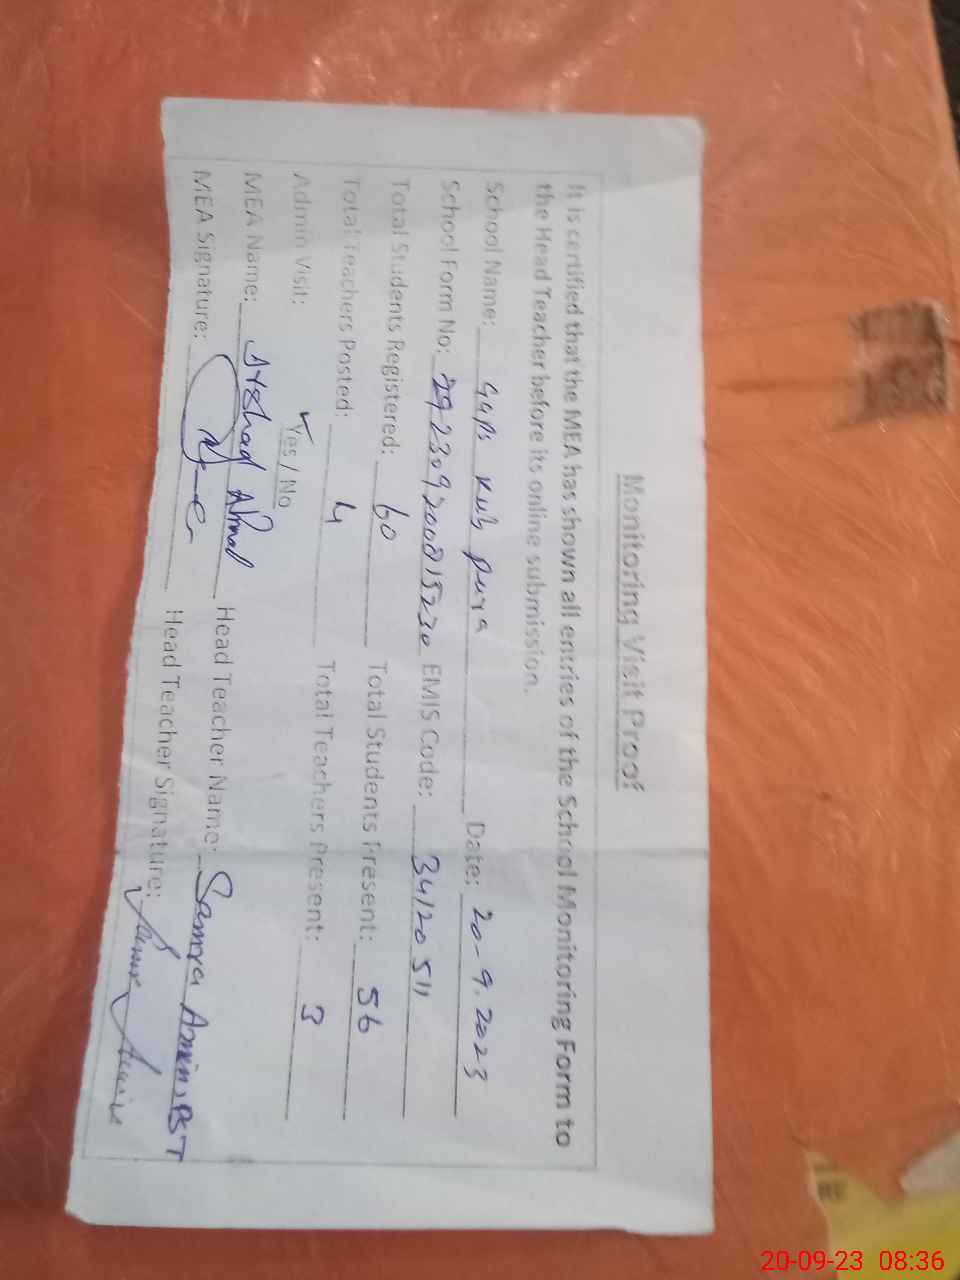 Monitoring Visit Proof
It is certified that the MEA has shown all entries of the School Monitoring Form to
the Head Teacher before its online submission.
School Name: GGPS Kub pura Date: 20-9.2023
School Form No: EMIS Code: 34120511
Total Students Registered: 60 Total Students Present: 56
Total Teachers Posted: 4 Total Teachers Present: 3
Admin Visit: Yes / No
MEA Name: Arshad Ahmad Head Teacher Name: Samra Amin, PST
MEA Signature: Head Teacher Signature:
RE
20-09-23 08:36